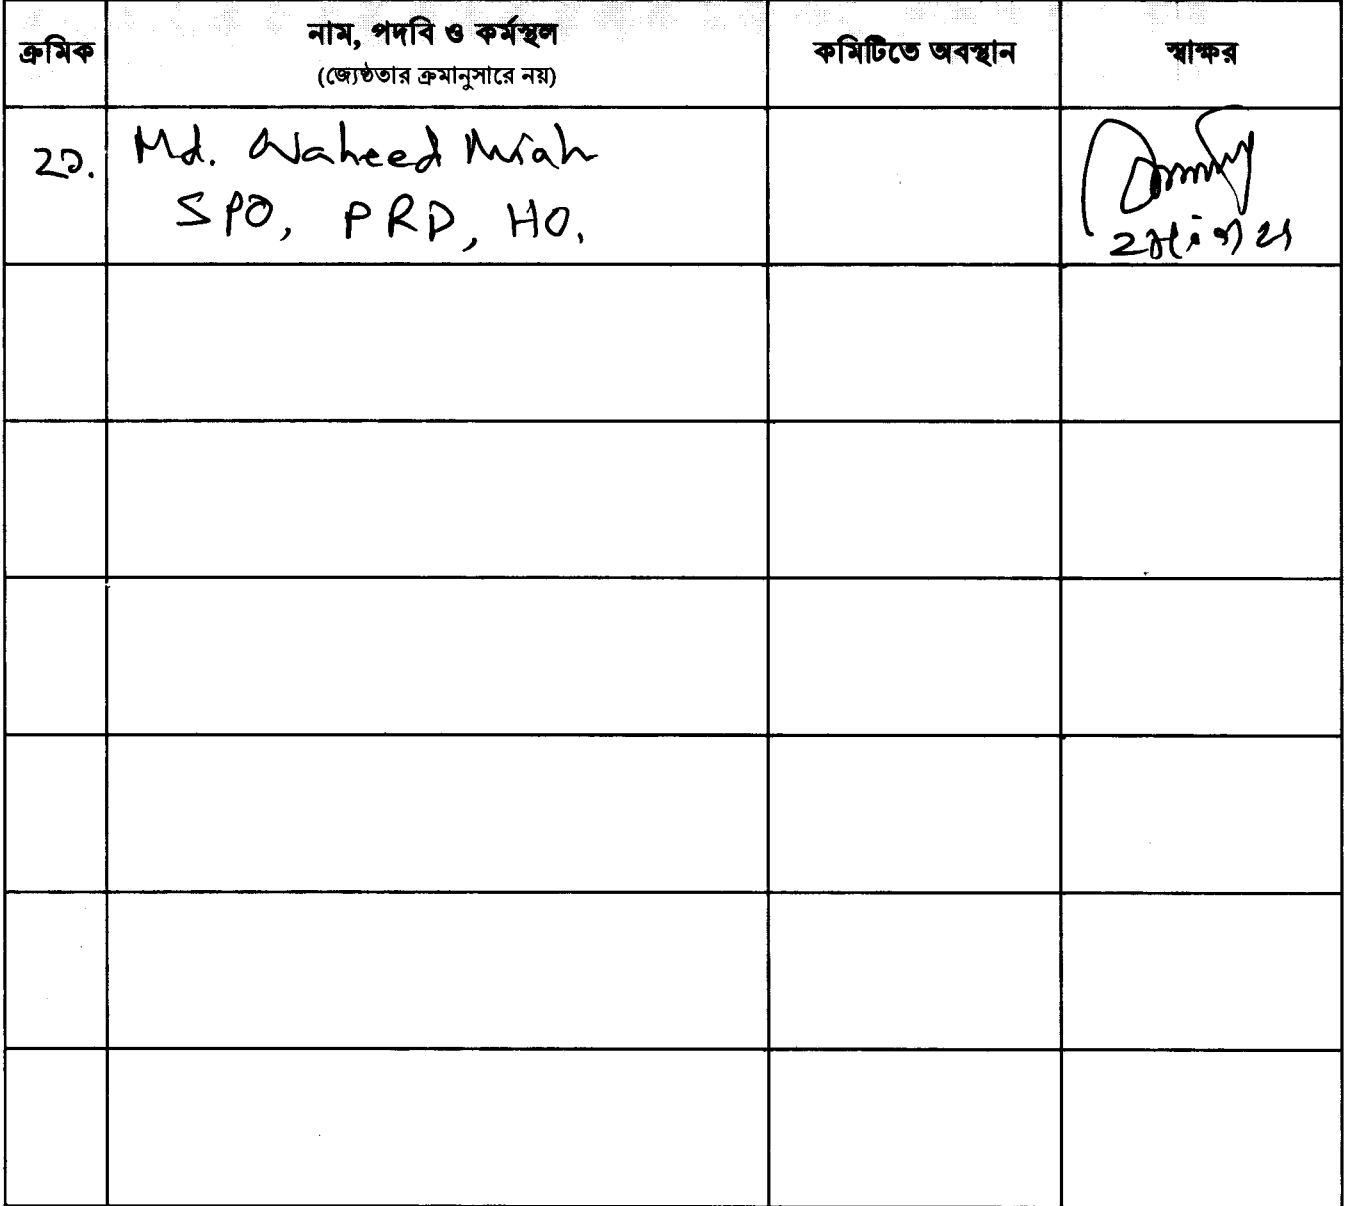 ক্রমিক
নাম, পদবি ও কর্মস্থল
(জ্যেষ্ঠতার ক্রমানুসারে নয়)
কমিটিতে অবস্থান
স্বাক্ষর
২১.
Md. Waheed Miah
SPO, PRD, HO.